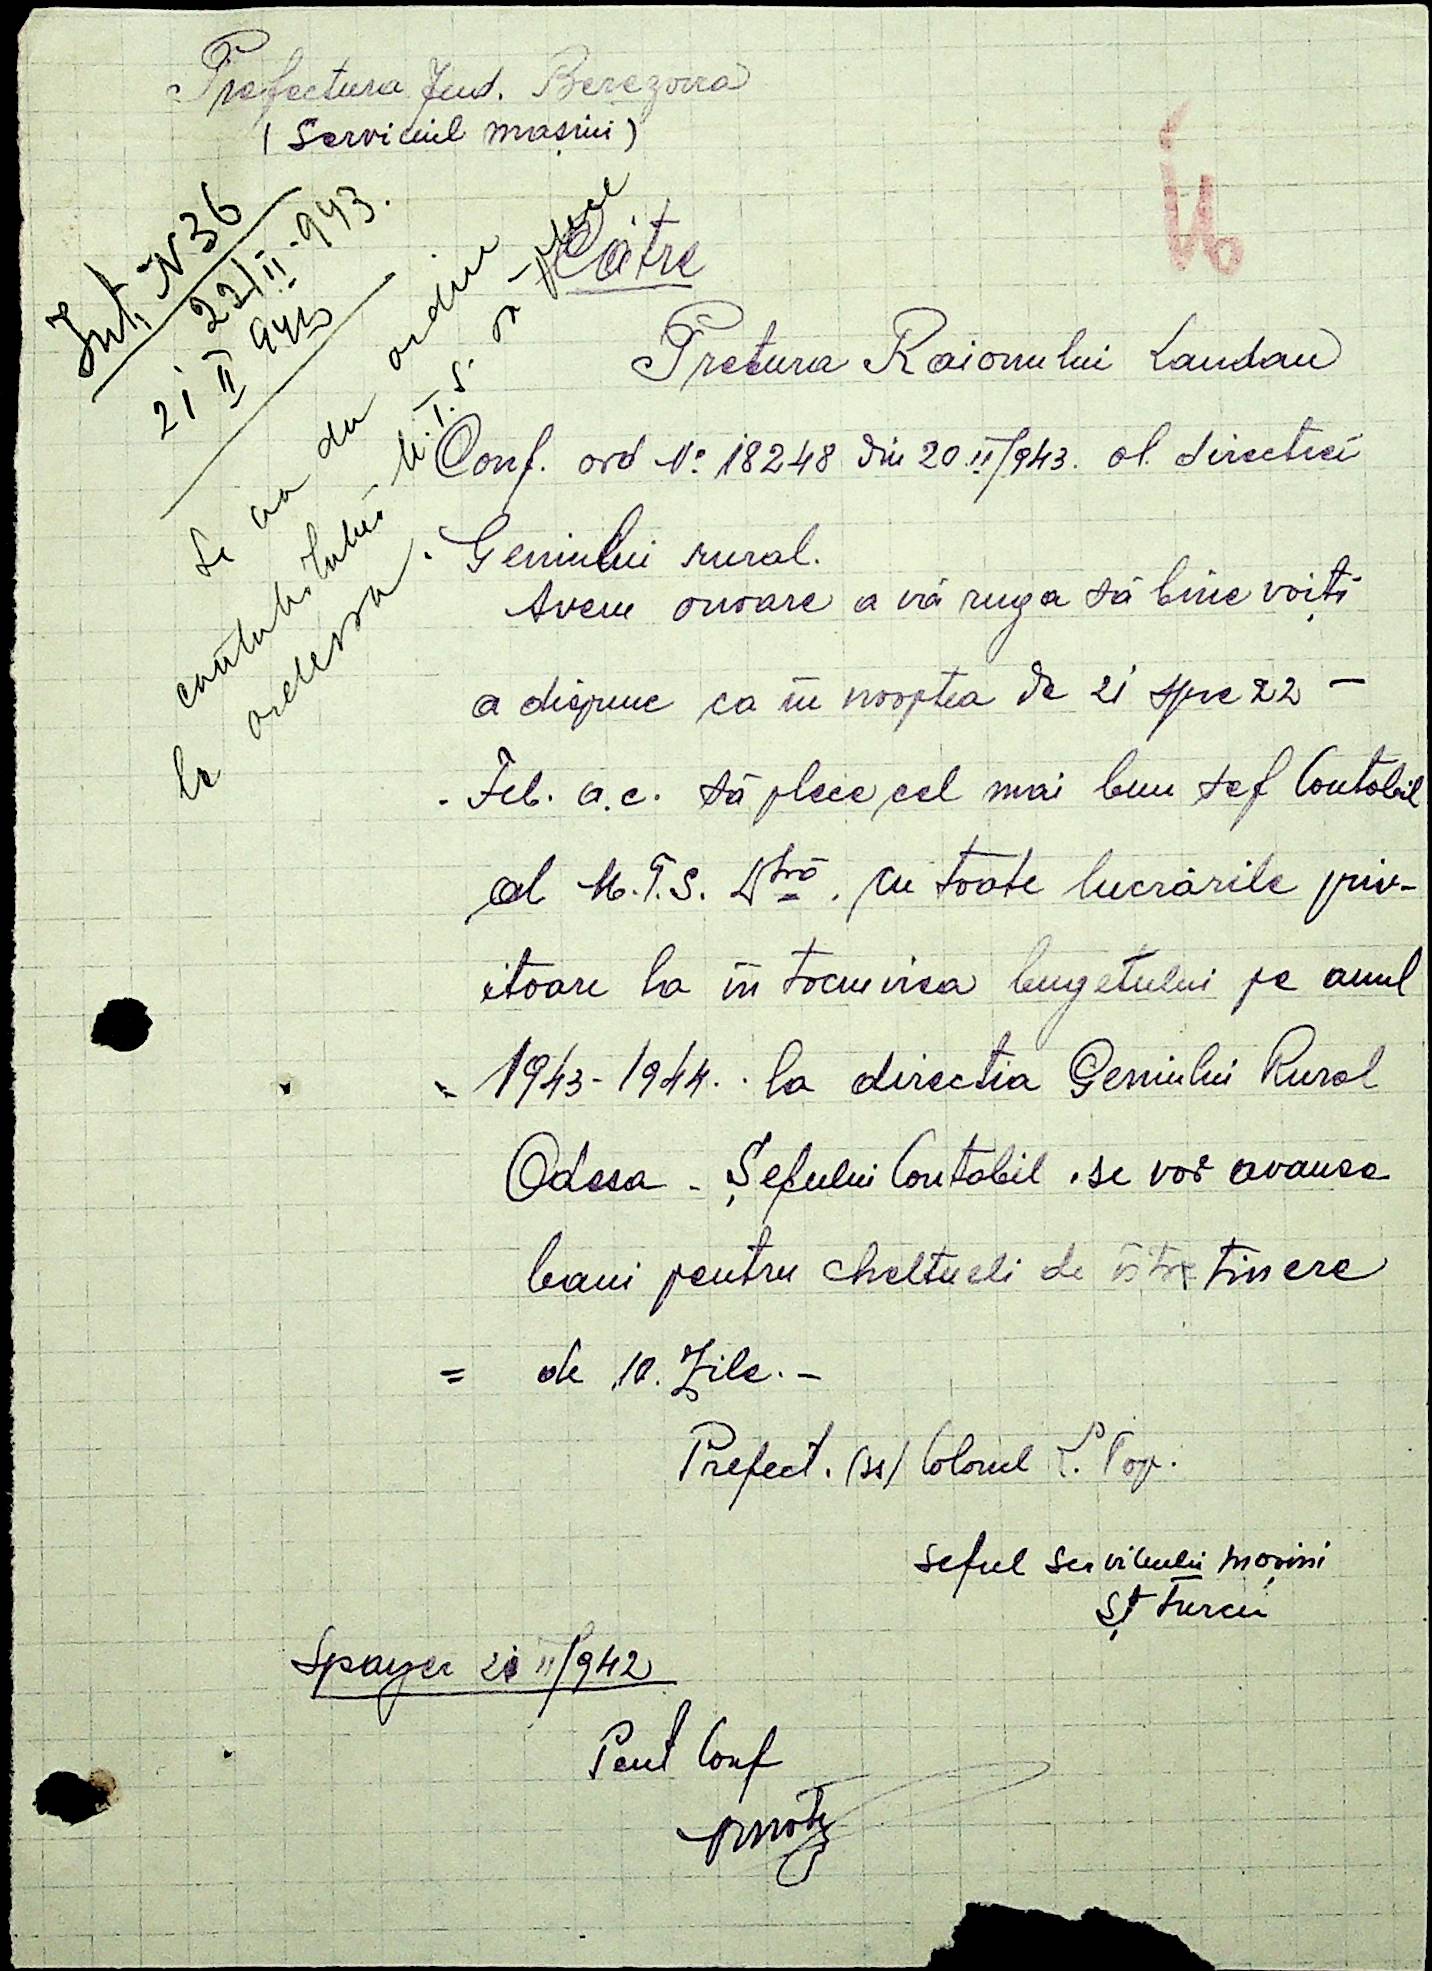 Prefectura Jud. Berezovca
(Serviciul mașini)
Int. N 36
22/II-943.
21 II 942
Se va da ordin
contabilului M.T.S. să plece
la odessa.
Către
Pretura Raionului Landau
Conf. ord No 18248 din 20 II/943. al directiei
Geniului rural.
Avem onoare a vă ruga să bine voiți
a dispune ca în nooptea de 21 spre 22 -
Feb. a.c. să plece cel mai bun sef Contabil
al M.T.S. Dtră. cu toate lucrările priv-
itoare la în tocmirea bugetului pe anul
1943-1944. la directia Geniului Rural
Odesa - Șefului Contabil se vor avansa
bani pentru cheltueli de între tinere
= de 10. Zile. -
Prefect. (ss) Colonel L. Pop.
seful serviciului mașini
Șt Turcu
Spayer 21 II/942
Pent Conf